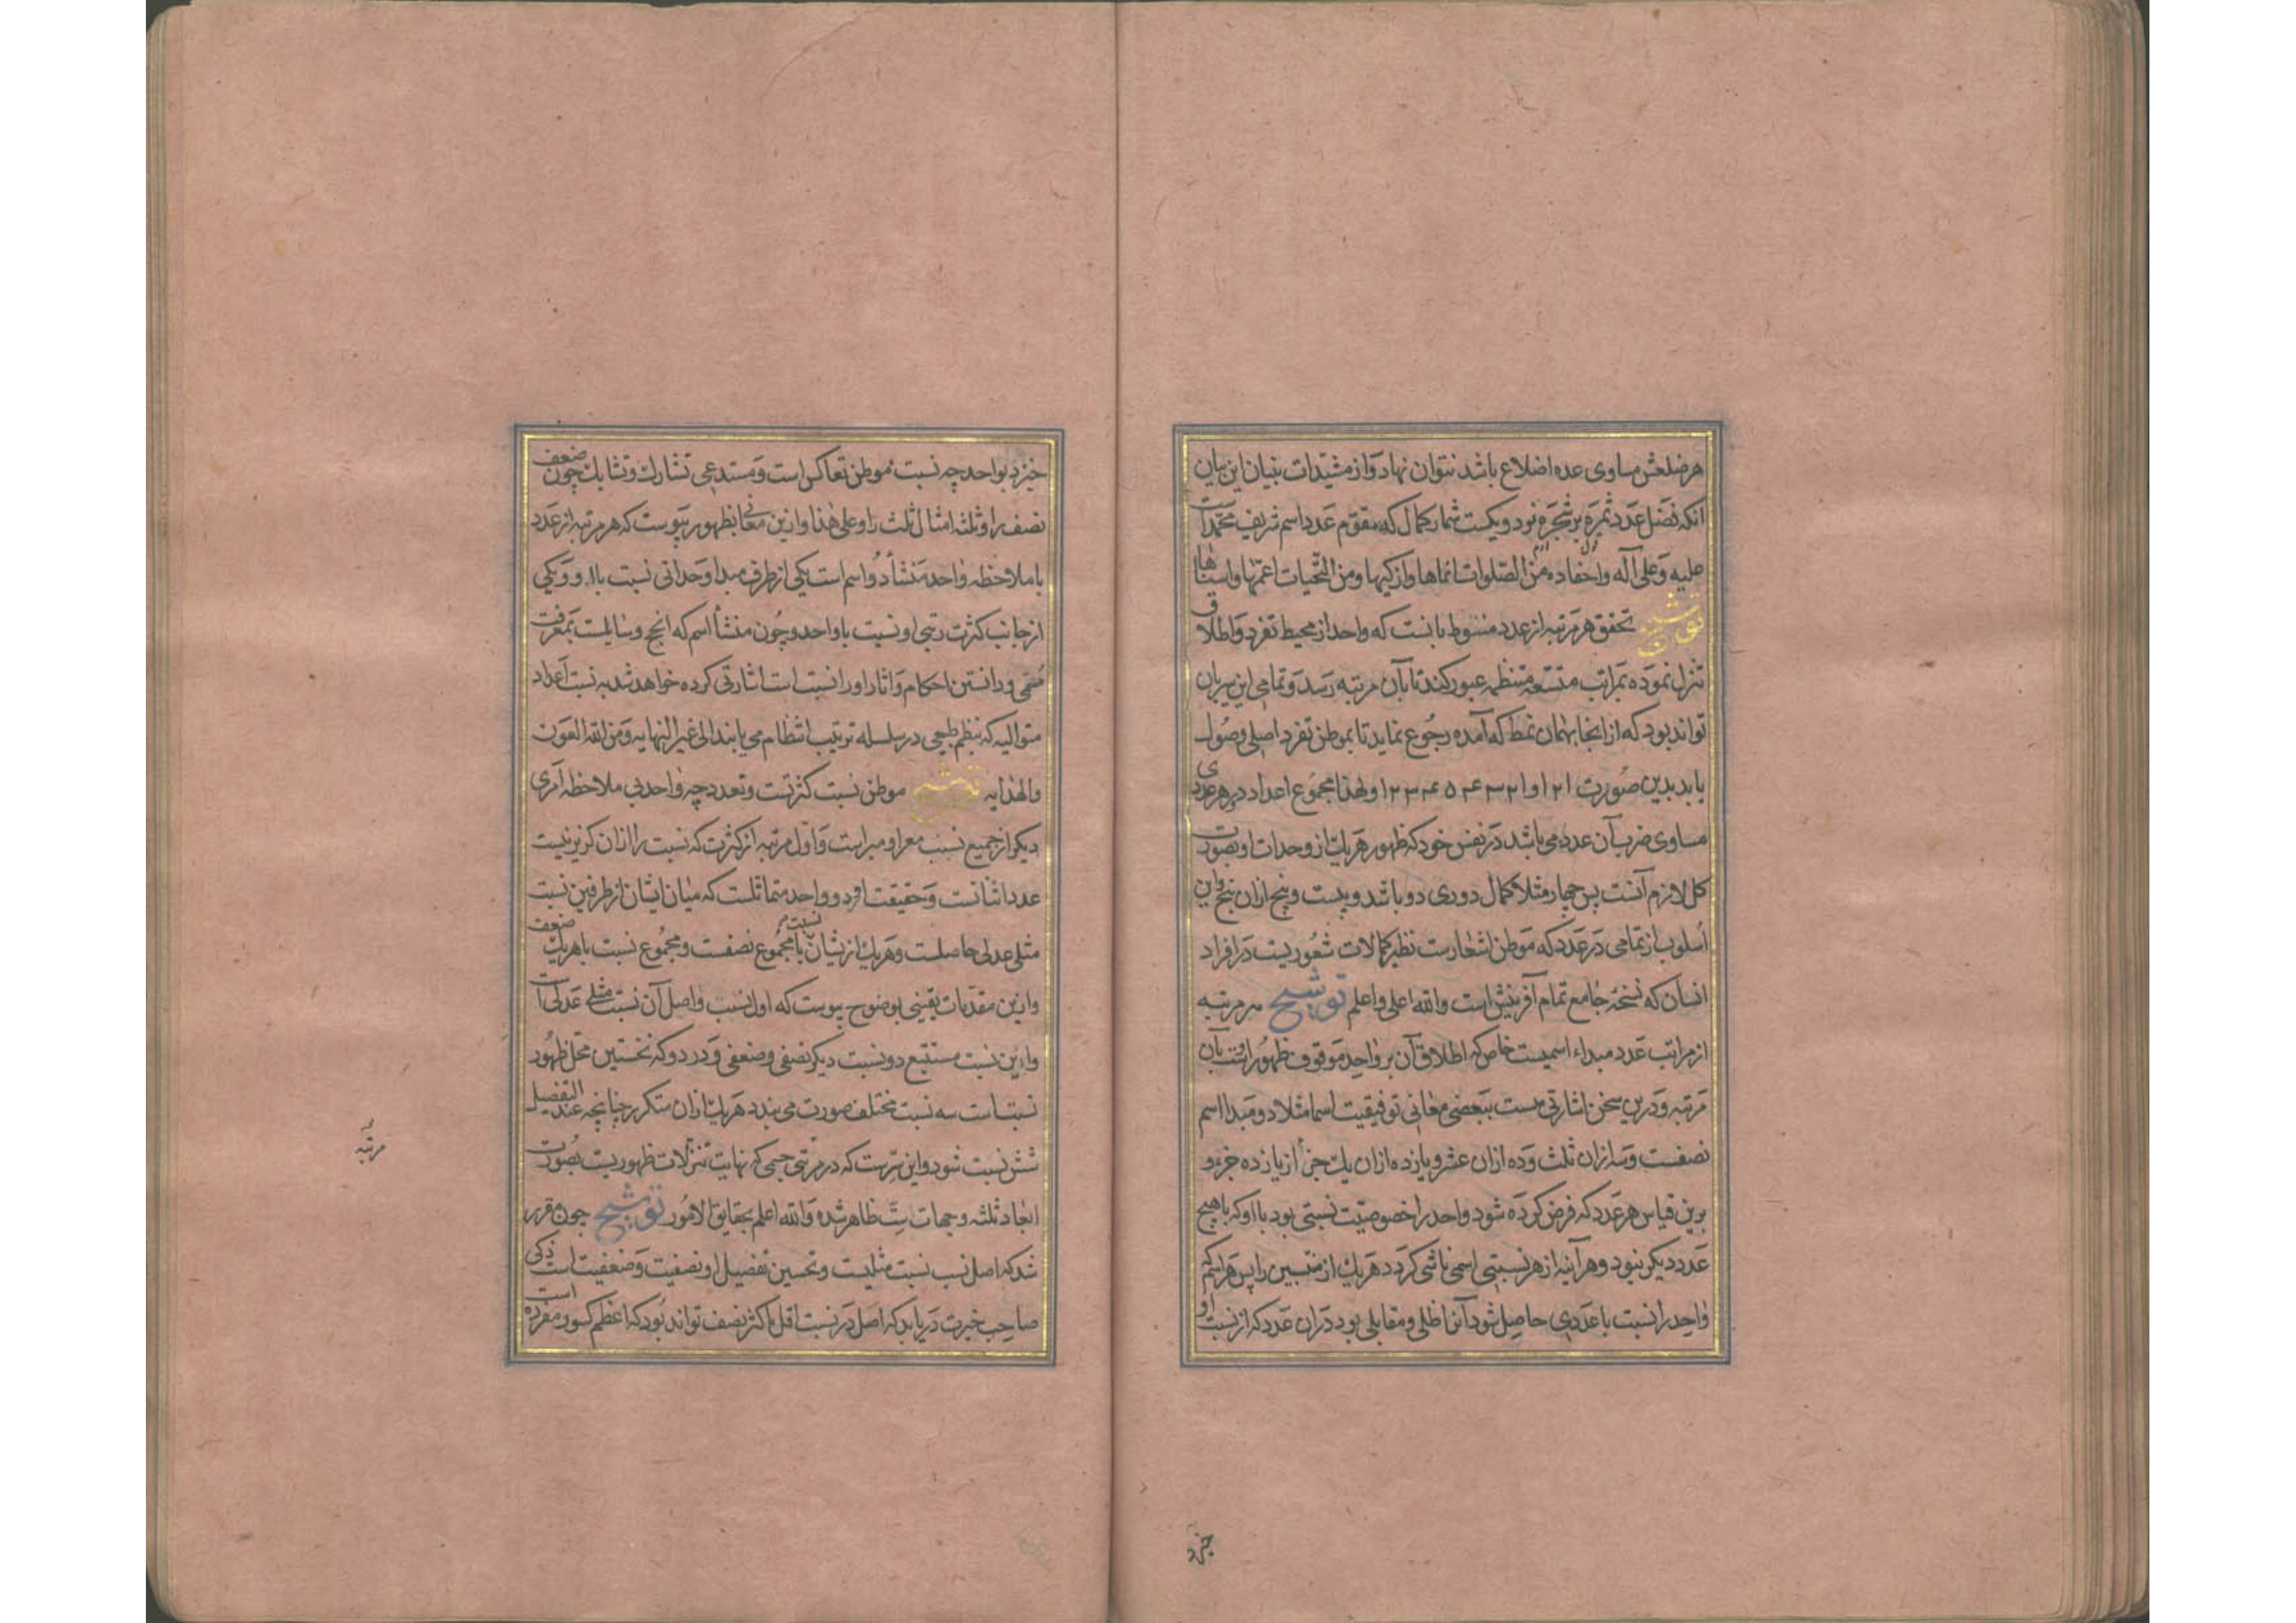 هر ضلعش مساوی عده اضلاع باشد نتوان نهاد و از مشیّدات بنیان این بیان
آنکه فضل عدد ثمره بر شجره نود و یکست شمار کمال که مقوّم عدد اسم شریف محمّد است
علیه و علی آله و احفاده من الصّلوات انماها و ازکیها و من التّحیات اعمّها و اسناها
توشیح تحقق هر مرتبه از عدد منوط بانست که واحد از محیط تفرد و اطلاق
تنزل نموده بمراتب متسّعه منتظمه عبور کند تا بآن مرتبه رسد و تمامی این سریان
تواند بود که از انجا بهمان نمط که آمده رجوع نماید تا بموطن تفرد اصلی وصول
یابد بدین صورت ۱۲۱ و ۱۲۳۴۵۴۳۲۱ و لهذا مجموع اعداد در هر عددی
مساوی ضرب آن عدد می باشد در نفس خود که ظهور هر یک از وحدات او بصورت
کل لازم آنست پس چهار مثلا کمال دوری دو باشد و بیست و پنج ازان پنج و این
اسلوب از تمامی در عدد که موطن اشعارست نظیر کمالات شعوریست در افراد
انسان که نسخه جامع تمام آفرینش است والله اعلی و اعلم توشیح هر مرتبه
از مراتب عدد مبداء اسمیست خاص که اطلاق آن بر واحد موقوف ظهور اوست بآن
مرتبه و درین سخن اشارتی هست ببعضی معانی توفیقیت اسما مثلا دو مبدا اسم
نصفست و سه ازان ثلث و ده ازان عشر و یازده ازان یک جزأ از یازده جزء و
برین قیاس هر عدد که فرض کرده شود واحد را خصوصیّت نسبتی بود با او که با هیچ
عدد دیگر نبود و هر آینه از هر نسبتی اسمی ناشی کردد هر یک از منتسبین را پس هر اسم که
واحد را نسبت با عددی حاصل شود آنرا ظلی و مقابلی بود دران عدد که از نسبت او
خیزد
خیزد بواحد چه نسبت موطن تعاکس است و مستدعی تشارک و تشابک چون ضعف
نصف را و ثلثه امثال ثلث را و علی هذا و ازین معانی بظهور پیوست که هر مرتبه از عدد
با ملاحظه واحد منشأ دو اسم است یکی از طرف مبدا وحدانی نسبت باو و یکی
از جانب کثرت رتبی او نسبت با واحد و چون منشأ اسم که انجح وسایلست بمعرفت
مسمی و دانستن احکام و اثار او را نسبت است اشارتی کرده خواهد شد به نسبت اعداد
متوالیه که بنظم طبیعی در سلسله ترتیب انتظام می یابند الی غیر النهایه و من الله العون
والهدایه توشیح موطن نسبت کثرتست و تعدد چه واحد بی ملاحظه امری
دیکر از جمیع نسب معرا و مبراست و اول مرتبه از کثرت که نسبت را ازان کزیر نیست
عدد اثنانست و حقیقت او دو واحد متماثلست که میان ایشان از طرفین نسبت
مثلی عدلی حاصلست و هر یک از یشان نسبت با مجموع نصفست و مجموع نسبت با هر یک ضعف
و ازین مقدّمات یقینی بوضوح پیوست که اول نسب و اصل آن نسبت مثلی عدلی است
و این نسبت مستتبع دو نسبت دیکر نصفی و ضعفی و در دو که نخستین محل ظهور
نسبتاست سه نسبت مختلف صورت می بندد هر یک ازان متکرر چنانچه عند التفصیل
شش نسبت شود و این سرّیست که در مرتبه جسمی که نهایت تنزلات ظهوریست بصورت
ابعاد ثلثه و جهات ستّ ظاهر شده والله اعلم بحقایق الامور توشیح چون مقرر
شد که اصل نسب نسبت مثلیت و نخستین تفصیل او نصفیت و ضعفیت است ذکی
صاحب خبرت دریابد که اصل در نسبت اقل باکثر نصف تواند بود که اعظم کسور مفرده است
مرتبه